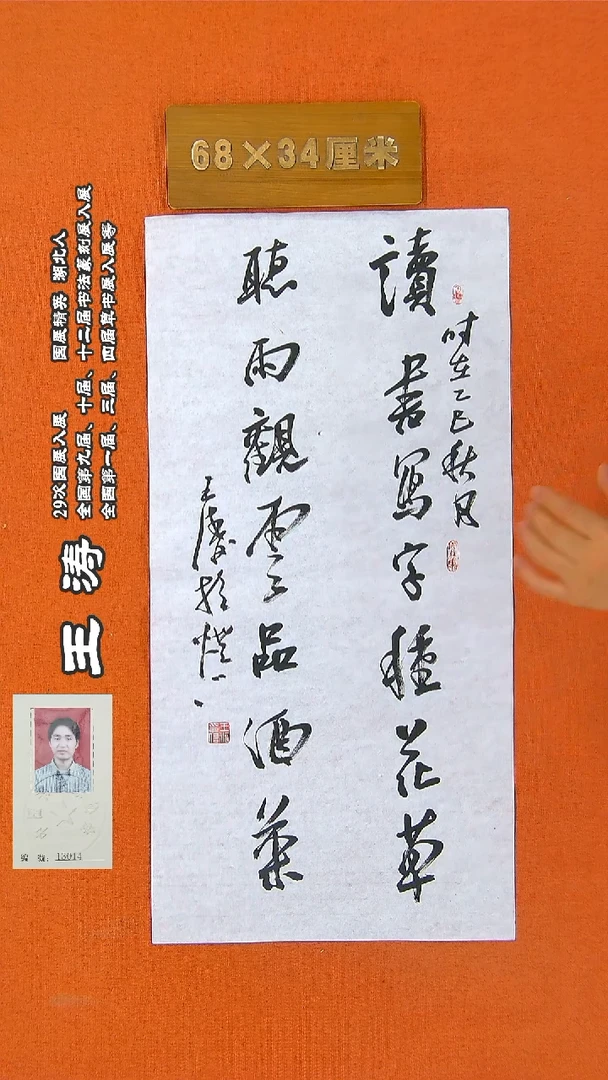 68×34厘米
讀書寫字種花草
聽雨觀雲品酒茶
时在乙巳秋月
王濤於
王涛
29次国展入展 国展精英 湖北人
全国第九届、十届、十二届书法篆刻展入展
全国第一届、三届、四届草书展入展等
编号：13014